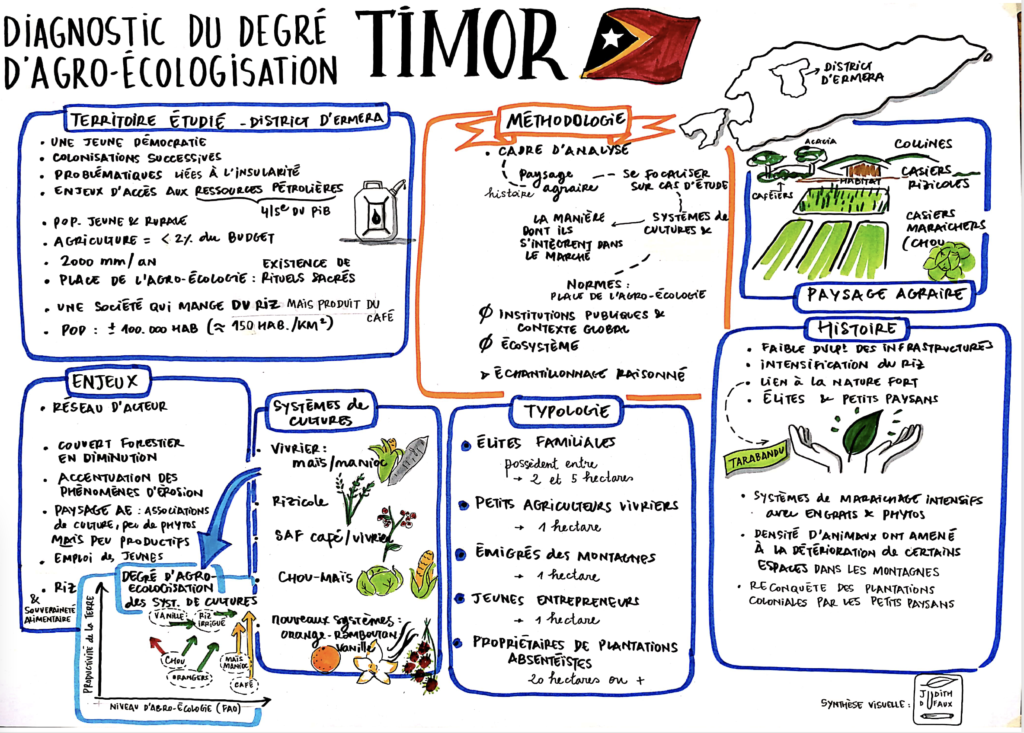 DIAGNOSTIC DU DEGRÉ
D'AGRO-ÉCOLOGISATION
TIMOR
DISTRICT
D'ERMERA
TERRITOIRE ÉTUDIÉ - DISTRICT D'ERMERA
• UNE JEUNE DÉMOCRATIE
• COLONISATIONS SUCCESSIVES
• PROBLÉMATIQUES LIÉES À L'INSULARITÉ
• ENJEUX D'ACCÈS AUX RESSOURCES PÉTROLIÈRES
4/5e DU PIB
• POP. JEUNE & RURALE
• AGRICULTURE = < 2% du BUDGET
• 2000 mm/AN
• PLACE DE L'AGRO-ÉCOLOGIE : EXISTENCE DE
RITUELS SACRÉS
• UNE SOCIÉTÉ QUI MANGE DU RIZ MAIS PRODUIT DU
CAFÉ
• POP : ± 100.000 HAB (≈ 150 HAB./KM²)
MÉTHODOLOGIE
• CADRE D'ANALYSE
paysage
agraire
histoire
SE FOCALISER
SUR CAS D'ÉTUDE
SYSTÈMES de
CULTURES &
LA MANIÈRE
DONT ILS
S'INTÈGRENT DANS
LE MARCHÉ
NORMES :
PLACE DE L'AGRO-ÉCOLOGIE
Ø INSTITUTIONS PUBLIQUES &
CONTEXTE GLOBAL
Ø ÉCOSYSTÈME
➤ ÉCHANTILLONNAGE RAISONNÉ
ACACIA
COLLINES
CAFÉIERS
HABITAT
CASIERS
RIZICOLES
CASIERS
MARAICHERS
(CHOU
PAYSAGE AGRAIRE
HISTOIRE
• FAIBLE DVLPT DES INFRASTRUCTURES
• INTENSIFICATION DU RIZ
• LIEN À LA NATURE FORT
• ÉLITES & PETITS PAYSANS
TARABANDU
• SYSTÈMES de MARAICHAGE INTENSIFS
avec ENGRAIS & PHYTOS
• DENSITÉ D'ANIMAUX ONT AMENÉ
À LA DÉTÉRIORATION DE CERTAINS
ESPACES DANS LES MONTAGNES
• RECONQUÊTE DES PLANTATIONS
COLONIALES PAR LES PETITS PAYSANS
ENJEUX
• RÉSEAU D'ACTEUR
• COUVERT FORESTIER
EN DIMINUTION
• ACCENTUATION DES
PHÉNOMÈNES D'ÉROSION
• PAYSAGE AE : ASSOCIATIONS
de CULTURE, peu de PHYTOS
MAIS PEU PRODUCTIFS
• EMPLOI de JEUNES
• RIZ
& SOUVERAINETÉ
ALIMENTAIRE
DEGRÉ D'AGRO-
ÉCOLOGISATION
des SYST. DE CULTURES
PRODUCTIVITÉ de LA TERRE
VANILLE
RIZ
IRRIGUÉ
CHOU
ORANGERS
MAÏS
MANIOC
CAFÉ
NIVEAU D'AGRO-ÉCOLOGIE (FAO)
SYSTÈMES de
CULTURES
• VIVRIER :
maïs/manioc
• Rizicole
• SAF café/vivrier
• CHOU-MAÏS
• nouveaux systèmes :
orange-Ramboutan
vanille
TYPOLOGIE
• ÉLITES FAMILIALES
possèdent entre
→ 2 et 5 hectares
• PETITS AGRICULTEURS VIVRIERS
→ 1 hectare
• ÉMIGRÉS des MONTAGNES
→ 1 hectare
• JEUNES ENTREPRENEURS
→ 1 hectare
• PROPRIÉTAIRES DE PLANTATIONS
ABSENTEÏSTES
20 hectares ou +
SYNTHÈSE VISUELLE :
JUDITH
DUFAUX